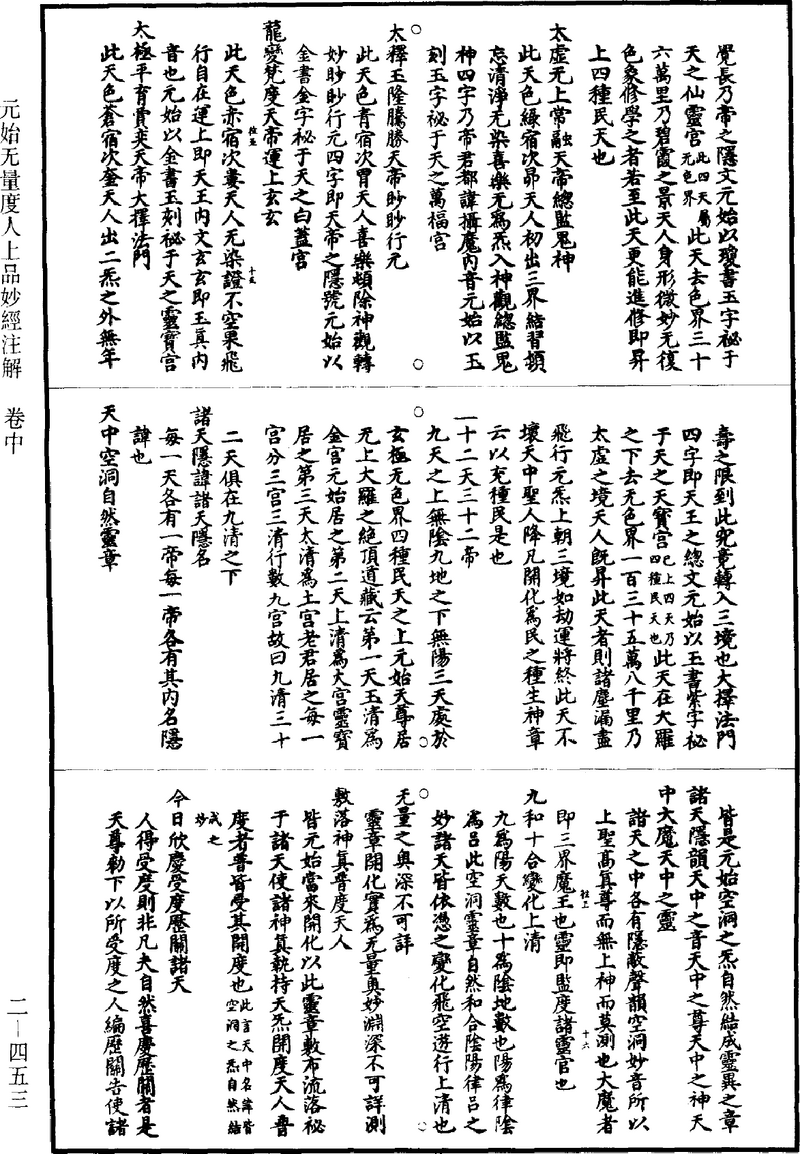 元始无量度人上品妙經注解　卷中
二—四五三
覺長乃帝之隱文元始以瓊書玉字祕于
天之仙靈宮此四天屬无色界此天去色界三十
六萬里乃碧霞之景天人身形微妙无復
色象修學之者若至此天更能進修即昇
上四種民天也
太虛无上常融天帝總監鬼神
此天色綠宿次昴天人初出三界結習頓
忘清淨无染喜樂无爲炁入神觀總監鬼
神四字乃帝君都諱攝魔內音元始以玉
刻玉字祕于天之萬福宮
太釋玉隆騰勝天帝眇眇行元
此天色青宿次胃天人喜樂頓除神觀轉
妙眇眇行元四字即天帝之隱號元始以
金書金字祕于天之白蓋宮
龍變梵度天帝運上玄玄
此天色赤宿次婁天人无染證不空果飛
行自在運上即天王內文玄玄即玉真內
音也元始以金書玉刻祕于天之靈寶宮
太極平育賈奕天帝大擇法門
此天色蒼宿次奎天人出二炁之外無年
壽之限到此究竟轉入三境也大擇法門
四字即天王之總文元始以玉書紫字祕
于天之天寶宮已上四天乃四種民天也此天在大羅
之下去无色界一百三十五萬八千里乃
太虛之境天人旣昇此天者則諸塵漏盡
飛行元炁上朝三境如劫運將終此天不
壞天中聖人降凡開化爲民之種生神章
云以充種民是也
三十二天三十二帝
九天之上無陰九地之下無陽三天處於
玄極无色界四種民天之上元始天尊居
无上大羅之絕頂道藏云第一天玉清爲
金宮元始居之第二天上清爲大宮靈寶
居之第三天太清爲土宮老君居之每一
宮分三宮三清行數九宮故曰九清三十
二天俱在九清之下
諸天隱諱諸天隱名
每一天各有一帝每一帝各有其內名隱
諱也
天中空洞自然靈章
皆是元始空洞之炁自然結成靈異之章
諸天隱韻天中之音天中之尊天中之神天
中大魔天中之靈
諸天之中各有隱敵聲韻空洞妙音所以
上聖高真尊而無上神而莫測也大魔者
即三界魔王也靈即監度諸靈官也
九和十合變化上清
九爲陽天數也十爲陰地數也陽爲律陰
爲呂此空洞靈章自然和合陰陽律呂之
妙諸天皆依憑之變化飛空遊行上清也
无量之奧深不可詳
靈章開化實爲无量奧妙淵深不可詳測
敷落神真普度天人
皆元始當來開化以此靈章敷布流落祕
于諸天使諸神真執持天炁開度天人普
度者普皆受其開度也此言天中名諱皆空洞之炁自然結成之妙
今日欣慶受度歷關諸天
人得受度則非凡夫自然喜慶歷關者是
天尊勅下以所受度之人編歷關告使諸